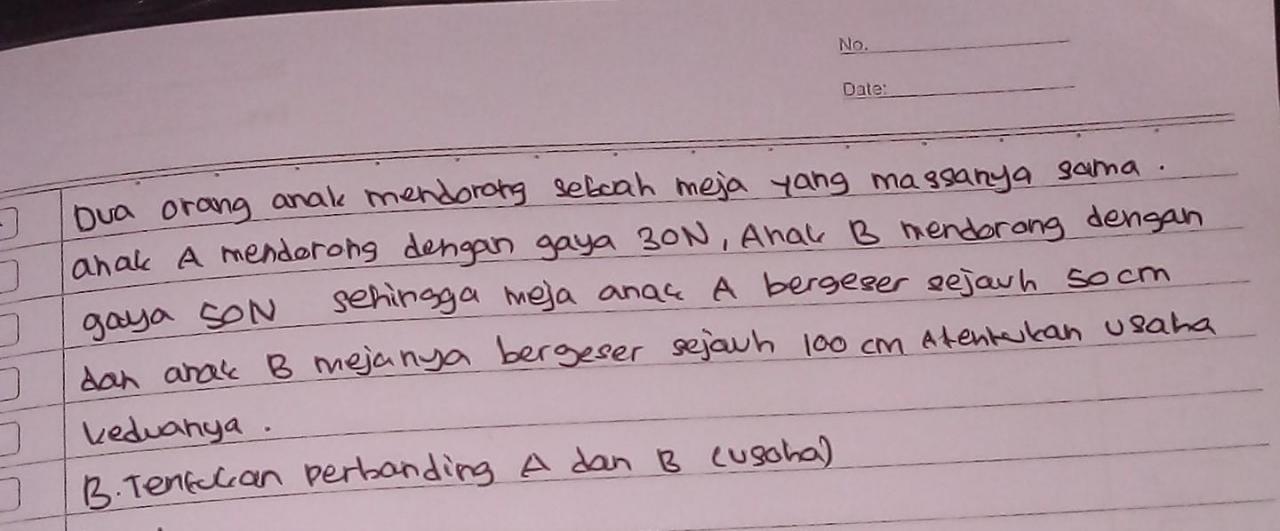 No.
Date:
Dua orang anak mendorong sebuah meja yang massanya sama.
anak A mendorong dengan gaya 30N, Anak B mendorong dengan
gaya 50N sehingga meja anak A bergeser sejauh 50 cm
dan anak B mejanya bergeser sejauh 100 cm A tentukan usaha
keduanya.
B. Tentukan perbanding A dan B (usaha)